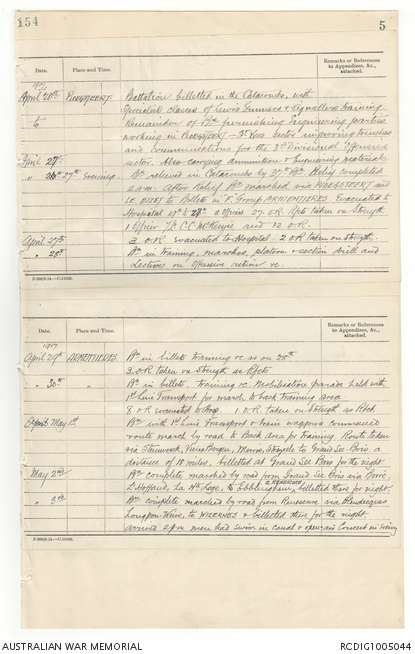 154
5
Date.
Place and Time.
Remarks or References to Appendices, &c., attached.
1917
April 21st PLOEGSTEERT
Battalion billetted in the Catacombs, with
Specialist classes of Lewis Gunners & Signallers training
Remainder of Bn. furnishing Engineering parties
working in PLOEGSTEERT - sector improving trenches
and communications for the 3rd Divisional Offensive
sector. Also carrying ammunition & Engineering materials
April 27
" 26th 27th Evening.
Bn. relieved in Catacombs by 37th Bn. Relief completed
2 a.m. After Relief Bn. marched via PLOEGSTEERT and
LE BIZET to Billets in ARMENTIERES. Evacuated to
Hospital 17th to 28th 2 Officers 27 O.R. taken on Strength
1 Officer C.C. McKenzie and 12 O.R.
April 27th
3 O.R. evacuated to Hospital. 2 O.R. taken on Strength.
" 28th
Bn. in Training, marches, platoon & section drill and
Lectures on Offensive action &c.
Date.
Place and Time.
Remarks or References to Appendices, &c., attached.
1917
April 29th ARMENTIERES
Bn. in billets Training &c. as on 28th
3 O.R. taken on Strength as Rfcts
" 30th "
Bn. in billets. Training &c. Mobilisation parade held with
1st Line Transport for march to back training area
8 O.R. evacuated to Hosp. 1 O.R. taken on Strength as Rfct
May 1st
Bn. with 1st Line Transport & train waggons commenced
route march by road to Back area for Training. Route taken
via Steenwerck, Vieux Berquin, Merris, Strazeele to Grand Sec Bois a
distance of 18 miles, billetted at Grand Sec Bois for the night
May 2nd
Bn. complete marched by road from Grand Sec Bois via Borre
L'Hoffand, La Loge, to Ebblinghem, & RENESCURE, billetted there for night.
" 3rd
Bn. complete marched by road from Renescure via Blendecques
Longue Croix, to WIZERNES & billetted there for the night
arrived 2 p.m. men had swim in canal & open air Concert in Evening
AUSTRALIAN WAR MEMORIAL
RCDIG1005044